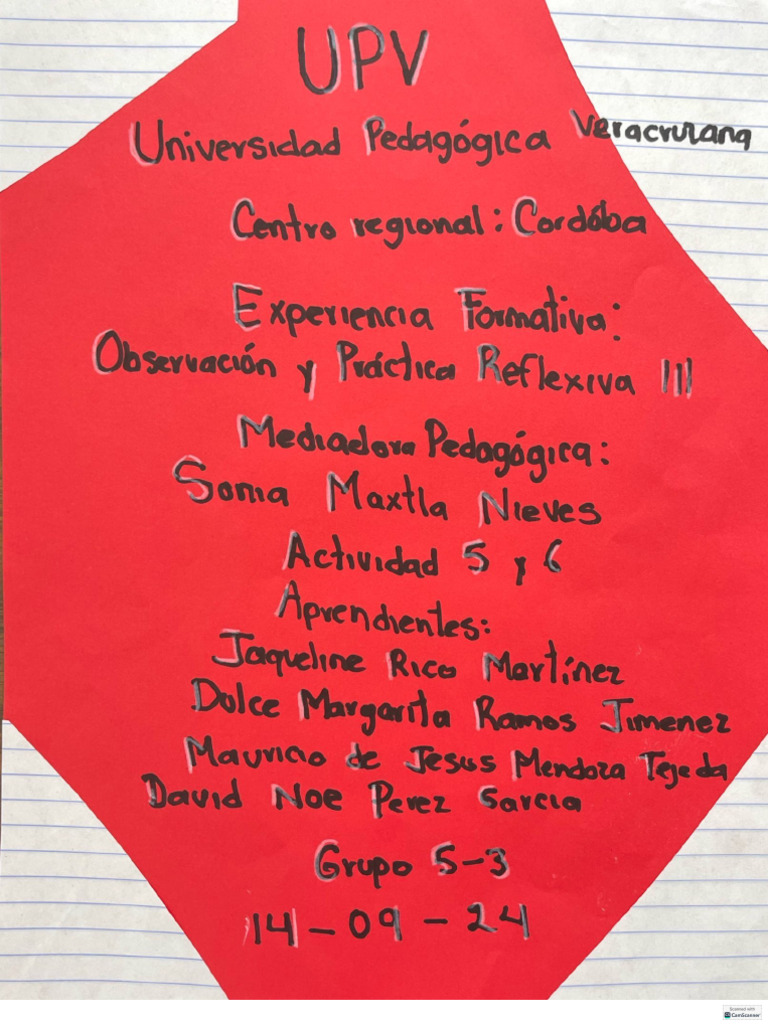 UPV
Universidad Pedagógica Veracruzana
Centro regional: Cordóba
Experiencia Formativa:
Observación y Práctica Reflexiva III
Mediadora Pedagógica:
Sonia Maxtla Nieves
Actividad 5 y 6
Aprendientes:
Jaqueline Rico Martínez
Dolce Margarita Ramos Jimenez
Mauricio de Jesus Mendoza Tejeda
David Noe Perez Garcia
Grupo 5-3
14-09-24
Scanned with
CamScanner